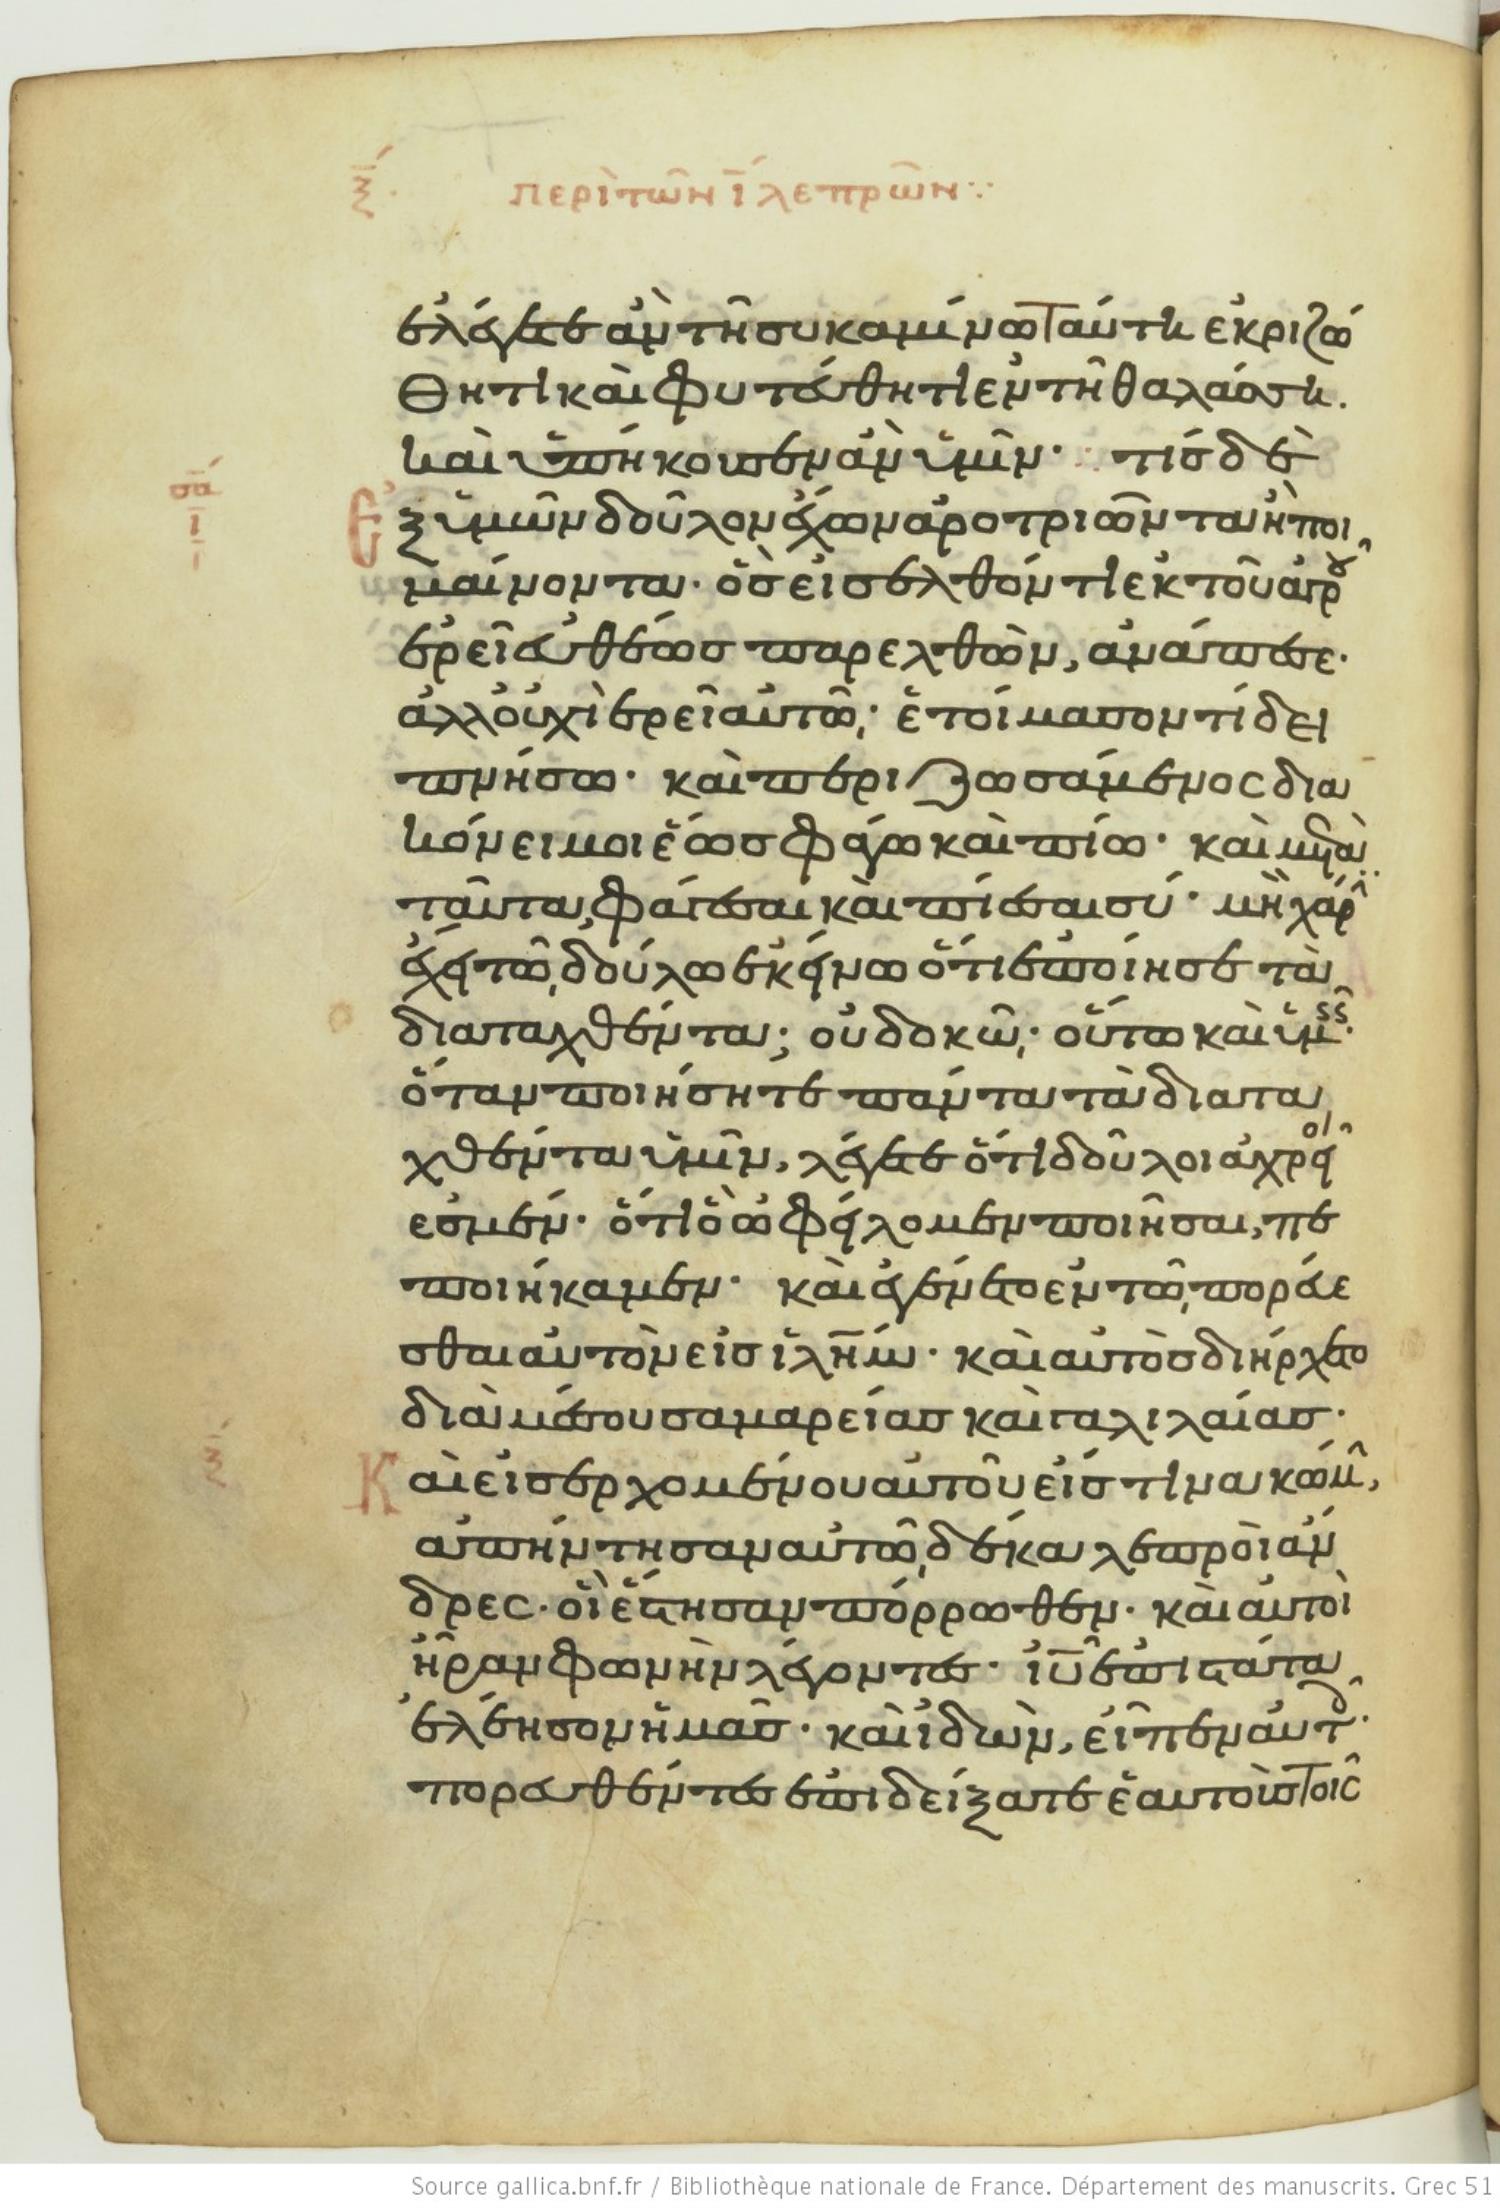 ξ. περὶ τῶν ῑ λεπρῶν
ἐλέγετε ἂν τῆ συκαμίνω ταύτη ἐκριζώ
θητι καὶ φυτεύθητι ἐν τῆ θαλάσση.
καὶ ὑπήκουσεν ἂν ὑμῖν· τίς δὲ
σα ι
ἐξ ὑμῶν δοῦλον ἔχων ἀροτριῶντα ἢ ποι
μαίνοντα· ὃς εἰσελθόντι ἐκ τοῦ ἀγροῦ
ἐρεῖ εὐθέως παρελθὼν, ἀνάπεσε·
ἀλλ' οὐχὶ ἐρεῖ αὐτῶ; ἑτοίμασον τί δει
πνήσω· καὶ περιζωσάμενος δια
κόνει μοι ἕως φάγω καὶ πίω· καὶ μετὰ
ταῦτα φάγεσαι καὶ πίεσαι σύ· μὴ χάριν
ἔχει τῶ δούλω ἐκείνω ὅτι ἐποίησε τὰ
διαταχθέντα; οὐ δοκῶ· οὕτω καὶ ὑμεῖς·
ὅταν ποιήσητε πάντα τὰ διατα
χθέντα ὑμῖν, λέγετε ὅτι δοῦλοι ἀχρεῖοι
ἐσμέν· ὅτι ὃ ὠφείλομεν ποιῆσαι, πε
ποιήκαμεν· καὶ ἐγένετο ἐν τῶ πορεύε
σθαι αὐτὸν εἰς ἱλῆμ· καὶ αὐτὸς διήρχετο
διὰ μέσου σαμαρείας καὶ γαλιλαίας·
ξ
Καὶ εἰσερχομένου αὐτοῦ εἴς τινα κώμην,
ἀπήντησαν αὐτῶ δέκα λεπροὶ ἄν
δρες· οἳ ἔστησαν πόρρωθεν· καὶ αὐτοὶ
ἦραν φωνὴν λέγοντες· ἰῦ ἐπιστάτα
ἐλέησον ἡμᾶς· καὶ ἰδὼν, εἶπεν αὐτοῖς·
πορευθέντες ἐπιδείξατε ἑαυτοὺς τοῖς
Source gallica.bnf.fr / Bibliothèque nationale de France. Département des manuscrits. Grec 51